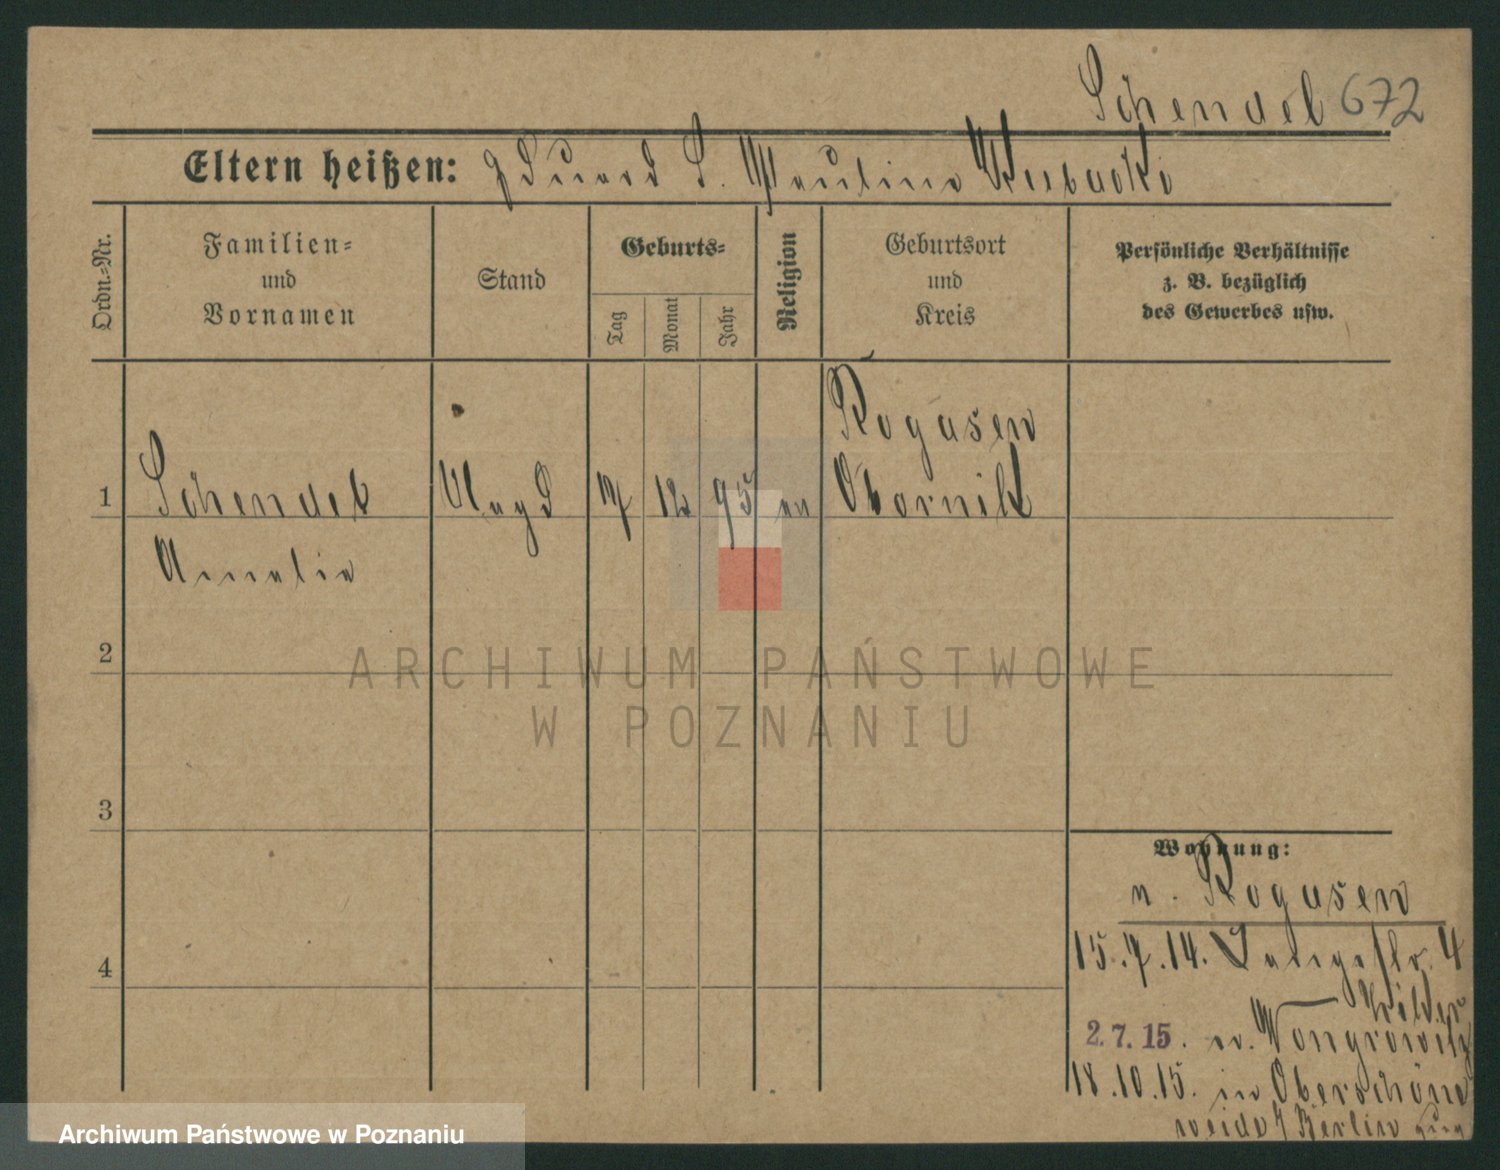 Schendel 672
Eltern heißen: Eduard S. Pauline Kubacki
Ordn.-Nr.
Familien-
und
Vornamen
Stand
Geburts-
Tag
Monat
Jahr
Religion
Geburtsort
und
Kreis
Persönliche Verhältnisse
z. B. bezüglich
des Gewerbes usw.
Rogasen
1 Schendel Magd 17 12 95 ev Obornik
Amalie
2
3
4
ARCHIWUM PAŃSTWOWE
W POZNANIU
Wohnung:
n. Rogasen
15.7.14. Langestr. 4
2.7.15. n. Wongrowitz
18.10.15. in Oberschöne
weide Berlin
Archiwum Państwowe w Poznaniu